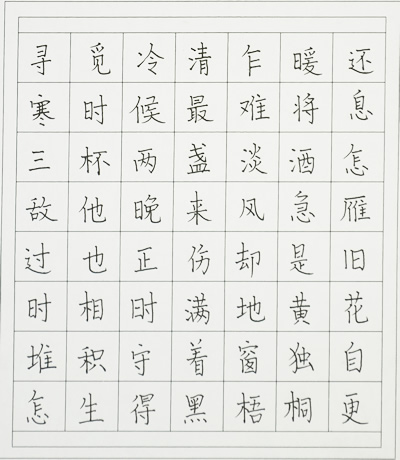 寻觅冷清乍暖还
寒时候最难将息
三杯两盏淡酒怎
敌他晚来风急雁
过也正伤却是旧
时相时满地黄花
堆积守着窗独自
怎生得黑梧桐更